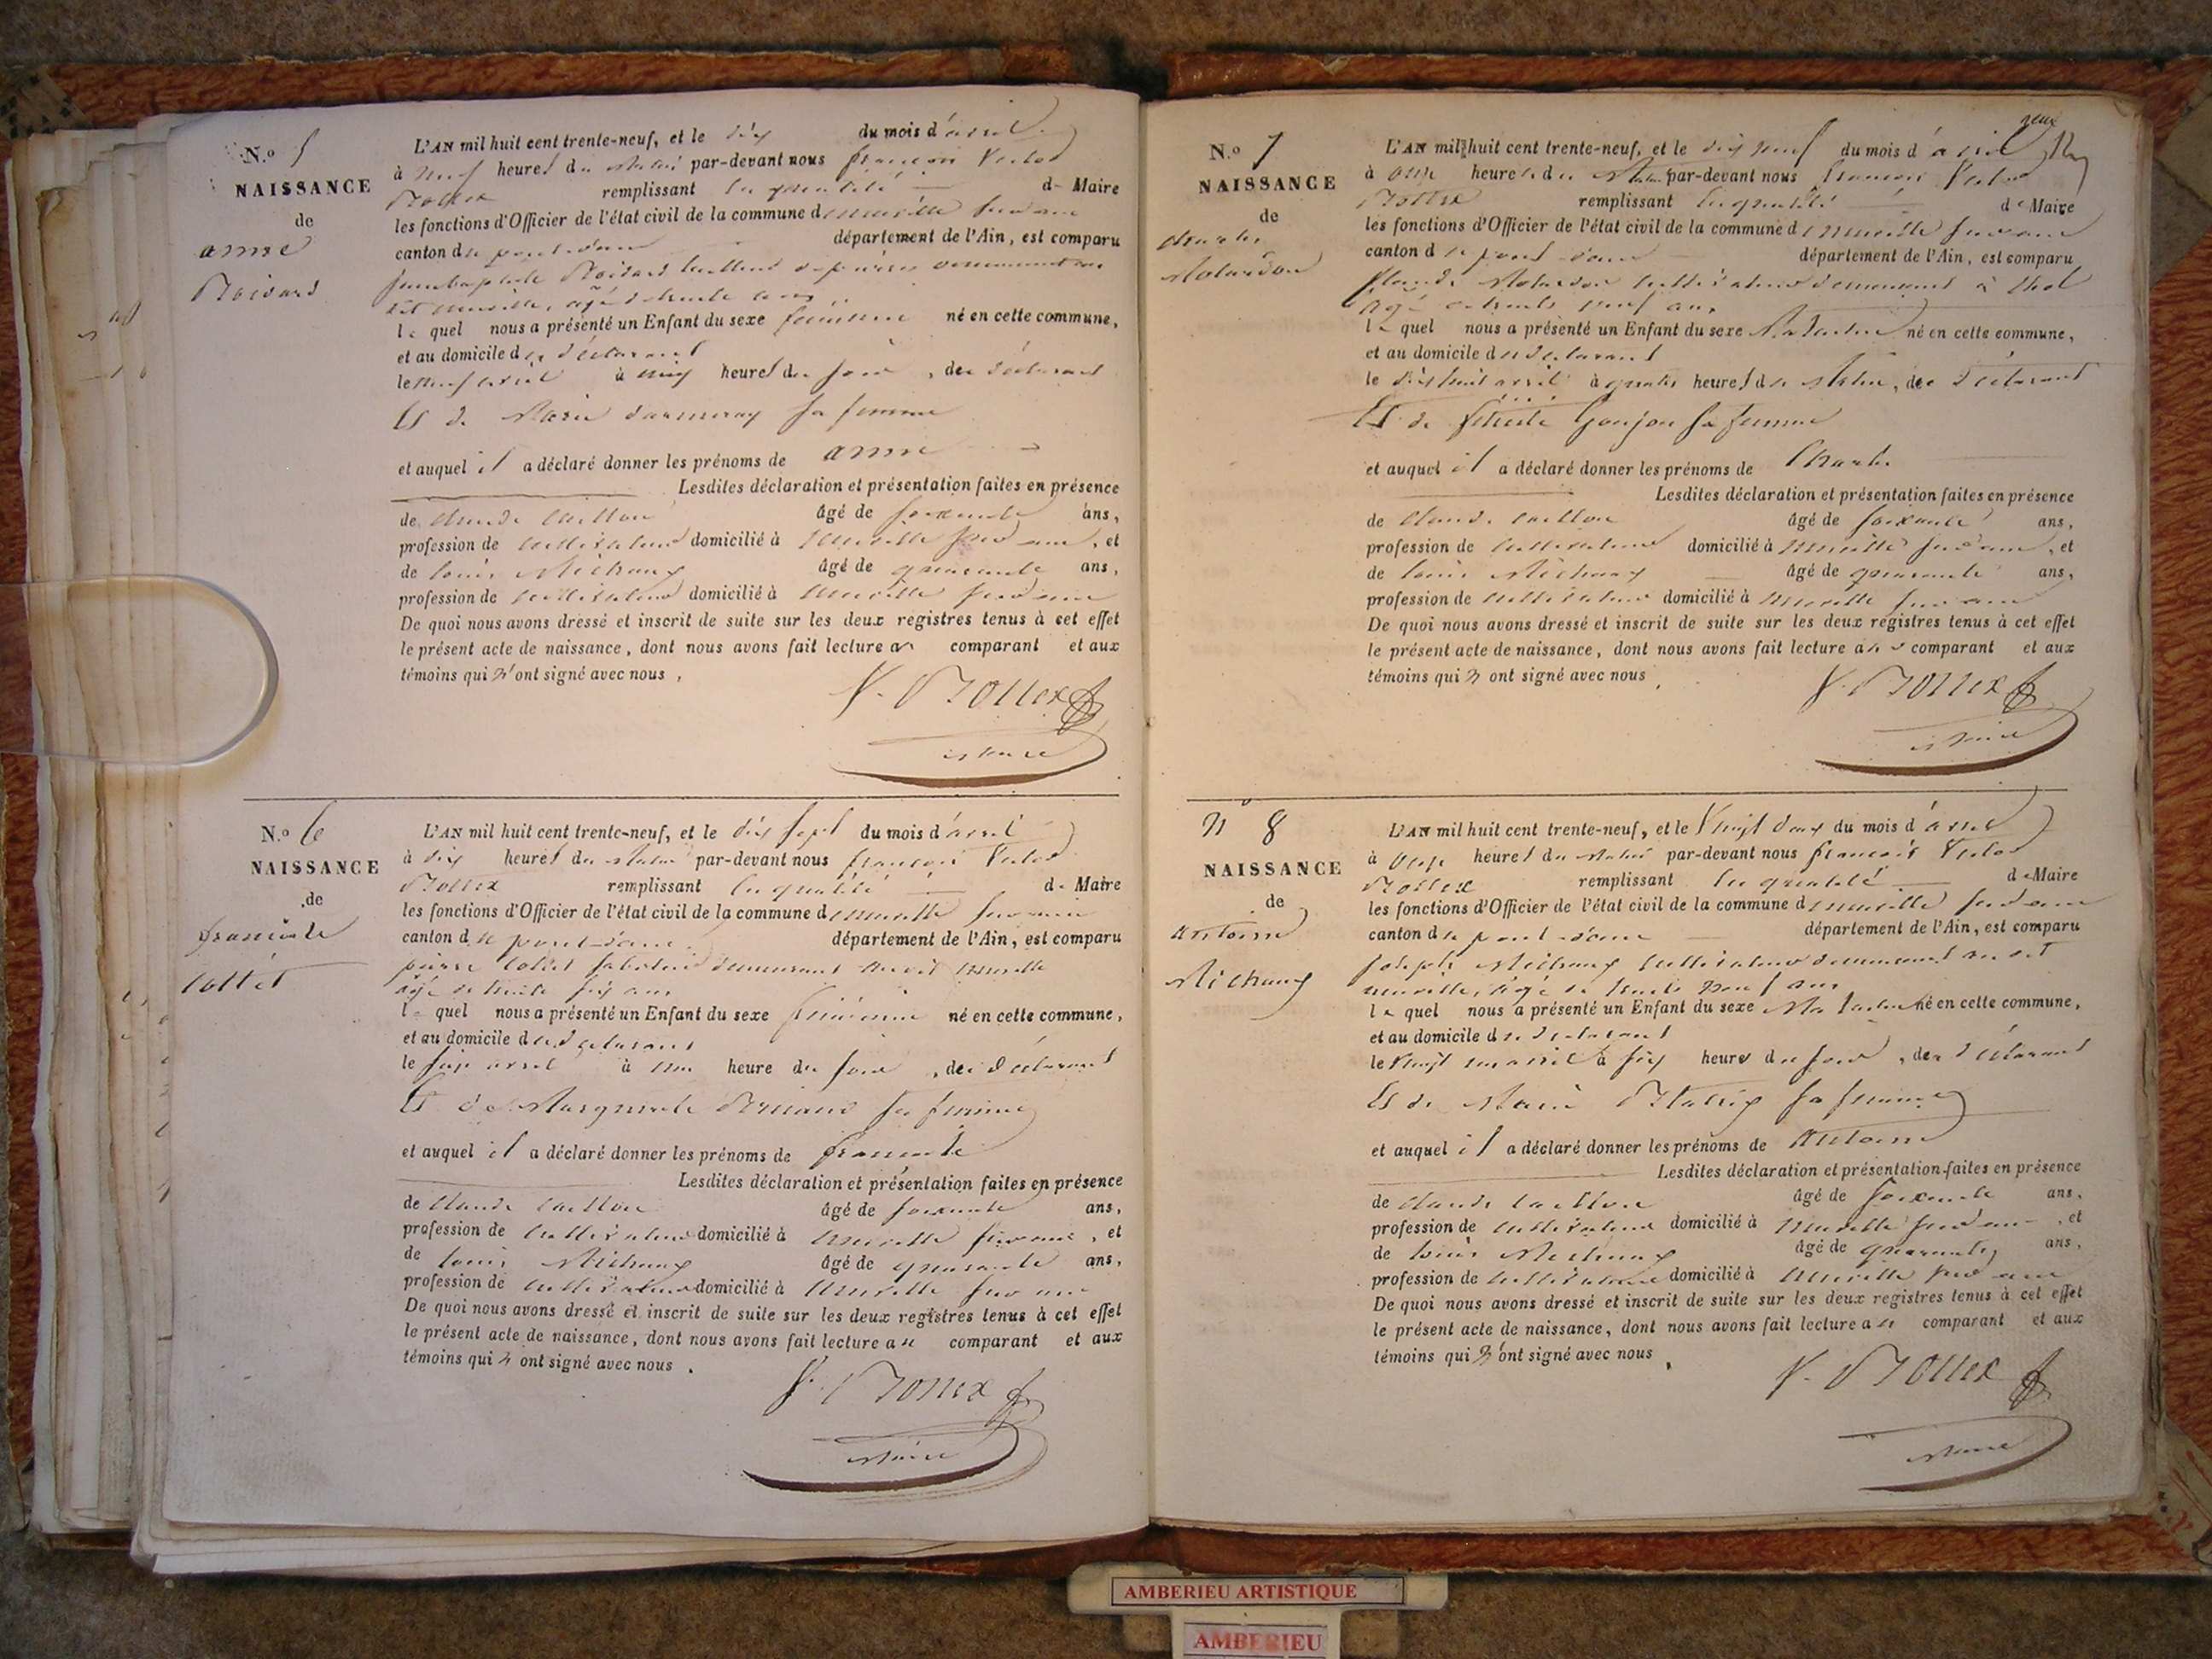 N.o 5
NAISSANCE
de
anne
Boisard
L'AN mil huit cent trente-neuf, et le dix du mois d'avril
à neuf heures du matin par-devant nous françois Victor
Bottex remplissant la qualité de Maire
les fonctions d'Officier de l'état civil de la commune de neuville sur ain
canton de pont-d'ain département de l'Ain, est comparu
jeanbaptiste Boisard tailleur de pierres demeurant au
dit neuville, agé de trente ans
le quel nous a présenté un Enfant du sexe feminin né en cette commune,
et au domicile du déclarant
le neuf avril à heures du soir, de déclarant
Et de Marie sa femme
et auquel il a déclaré donner les prénoms de anne
Lesdites déclaration et présentation faites en présence
de Claude caillon âgé de soixante ans,
profession de cultivateur domicilié à neuville sur ain, et
de louis Michaux âgé de quarante ans,
profession de cultivateur domicilié à neuville sur ain
De quoi nous avons dressé et inscrit de suite sur les deux registres tenus à cet effet
le présent acte de naissance, dont nous avons fait lecture au comparant et aux
témoins qui n'ont signé avec nous,
V. Bottex
maire
N.o 6
NAISSANCE
de
françoise
Collet
L'AN mil huit cent trente-neuf, et le dix sept du mois d'avril
à dix heures du matin par-devant nous françois Victor
Bottex remplissant la qualité de Maire
les fonctions d'Officier de l'état civil de la commune de neuville sur ain
canton de pont-d'ain département de l'Ain, est comparu
pierre Collet sabotier demeurant audit neuville
agé de trente six ans
le quel nous a présenté un Enfant du sexe féminin né en cette commune,
et au domicile du déclarant
le seize avril à une heure du soir, de déclarant
Et de Marguerite sa femme
et auquel il a déclaré donner les prénoms de françoise
Lesdites déclaration et présentation faites en présence
de Claude caillon âgé de soixante ans,
profession de cultivateur domicilié à neuville sur ain, et
de louis Michaux âgé de quarante ans,
profession de cultivateur domicilié à neuville sur ain
De quoi nous avons dressé et inscrit de suite sur les deux registres tenus à cet effet
le présent acte de naissance, dont nous avons fait lecture au comparant et aux
témoins qui n'ont signé avec nous.
V. Bottex
maire
N.o 7
NAISSANCE
de
charles
Molardon
L'AN mil huit cent trente-neuf, et le dix neuf du mois d'avril
à onze heures du matin par-devant nous françois Victor
Bottex remplissant la qualité de Maire
les fonctions d'Officier de l'état civil de la commune de neuville sur ain
canton de pont-d'ain département de l'Ain, est comparu
Claude Molardon cultivateur demeurant à thol
agé de trente neuf ans
le quel nous a présenté un Enfant du sexe Masculin né en cette commune,
et au domicile du declarant
le dix huit avril à quatre heures du Matin, de déclarant
Et de félicité Goujon sa femme
et auquel il a déclaré donner les prénoms de Charles
Lesdites déclaration et présentation faites en présence
de Claude caillon âgé de soixante ans,
profession de cultivateur domicilié à neuville sur ain, et
de louis Michaux âgé de quarante ans,
profession de cultivateur domicilié à neuville sur ain
De quoi nous avons dressé et inscrit de suite sur les deux registres tenus à cet effet
le présent acte de naissance, dont nous avons fait lecture au comparant et aux
témoins qui n'ont signé avec nous.
V. Bottex
maire
n 8
NAISSANCE
de
Antoine
Michaux
L'AN mil huit cent trente-neuf, et le Vingt deux du mois d'avril
à onze heures du matin par-devant nous françois Victor
Bottex remplissant la qualité de Maire
les fonctions d'Officier de l'état civil de la commune de neuville sur ain
canton de pont-d'ain département de l'Ain, est comparu
joseph Michaux cultivateur demeurant au dit
neuville, agé de trente neuf ans
le quel nous a présenté un Enfant du sexe Masculin né en cette commune,
et au domicile du declarant
le Vingt un avril à six heures du soir, de déclarant
Et de Marie sa femme
et auquel il a déclaré donner les prénoms de Antoine
Lesdites déclaration et présentation faites en présence
de claude caillon âgé de soixante ans,
profession de cultivateur domicilié à neuville sur ain, et
de louis Michaux âgé de quarante ans,
profession de cultivateur domicilié à neuville sur ain
De quoi nous avons dressé et inscrit de suite sur les deux registres tenus à cet effet
le présent acte de naissance, dont nous avons fait lecture au comparant et aux
témoins qui n'ont signé avec nous.
V. Bottex
maire
AMBERIEU ARTISTIQUE
AMBERIEU